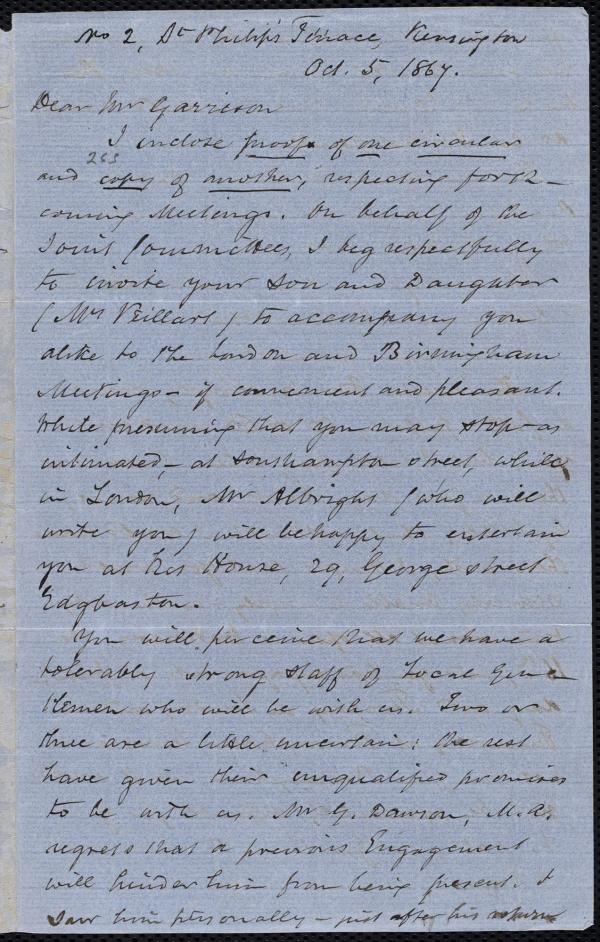 No 2, St Philip's Terrace, Kensington
Oct. 5, 1867.
Dear Mr Garrison
I inclose proof of one circular
263
and copy of another, respecting forth-
coming Meetings. On behalf of the
Joint Committees, I beg respectfully
to invite your Son and Daughter
(Mrs Villard) to accompany you
alike to the London and Birmingham
Meetings – if convenient and pleasant.
While presuming that you may stop – as
intimated, – at Southampton street, while
in London, Mr Albright (who will
write you) will be happy to entertain
you at his House, 29, George street
Edgbaston.
You will perceive that we have a
tolerably strong staff of Local Gen-
tlemen who will be with us. Two or
three are a little uncertain: the rest
have given their unqualified promises
to be with us. Mr G. Dawson, M.A.
regrets that a previous Engagement
will hinder him from being present. I
saw him personally – just after his return